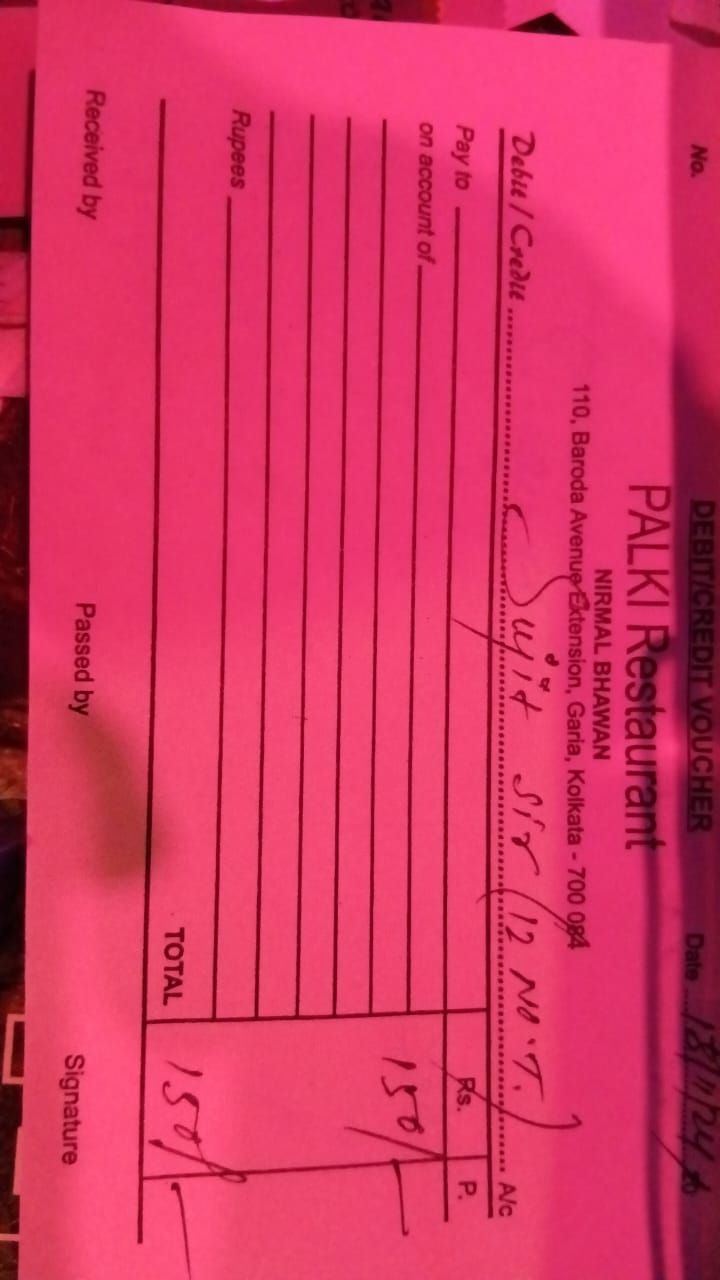 DEBIT/CREDIT VOUCHER
No. Date 18/11/24
PALKI Restaurant
NIRMAL BHAWAN
110, Baroda Avenue Extension, Garia, Kolkata - 700 084
Debit / Credit Sujit Sir (12 NO. T.) A/c
Pay to Rs. P.
on account of 150/-
Rupees
TOTAL 150/-
Received by Passed by Signature